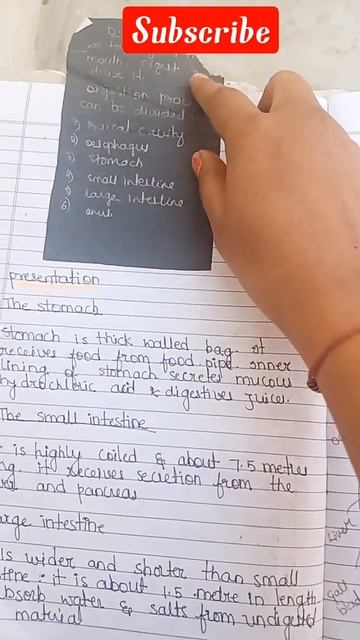 Subscribe
mouth, digest
can be divided
1) Buccal cavity
2) oesophagus
3) stomach
4) small intestine
5) large intestine
6) anus
presentation
The stomach
stomach is thick walled bag. it
receives food from food pipe. inner
lining of stomach secretes mucous
hydrochloric acid & digestives juices.
The small intestine
is highly coiled & about 7.5 metres
it receives secretion from the
and pancreas
arge intestine
is wider and shoter than small
tine. it is about 1.5 metre in length
absorb water & salts from undigested
material
Liver
Gall